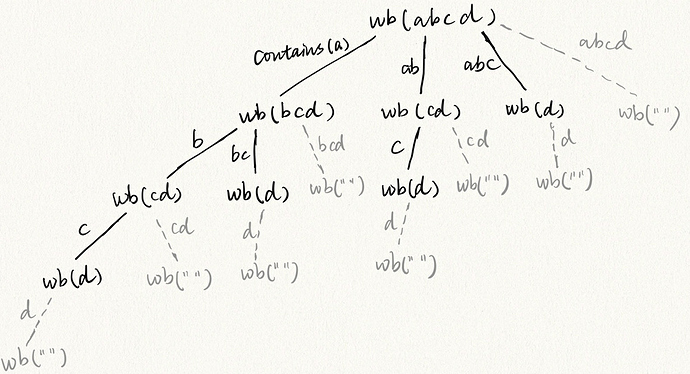 wb(abcd)
contains(a) ab abc abcd
wb(bcd) wb(cd) wb(d) wb("")
b bc bcd c cd d
wb(cd) wb(d) wb("") wb(d) wb("") wb("")
c cd d d
wb(d) wb("") wb("") wb("")
d
wb("")